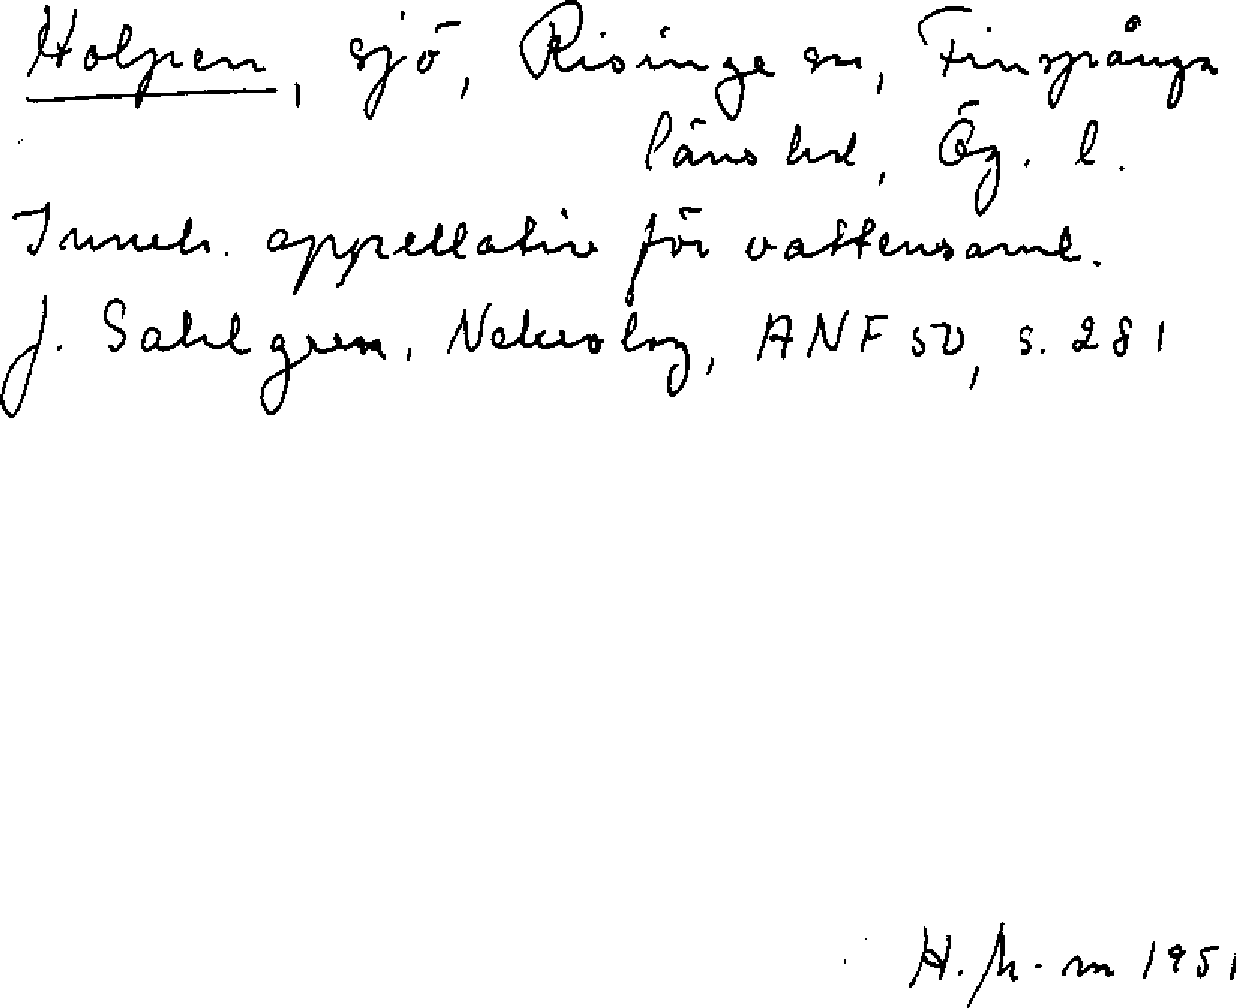 Holpen, sjö, Risinge sn, Finspånga
läns hd, Ög. l.
Inneh. appellativ för vattensaml.
J. Sahlgren, Nekrolog, ANF 50, s. 281
H. 1951